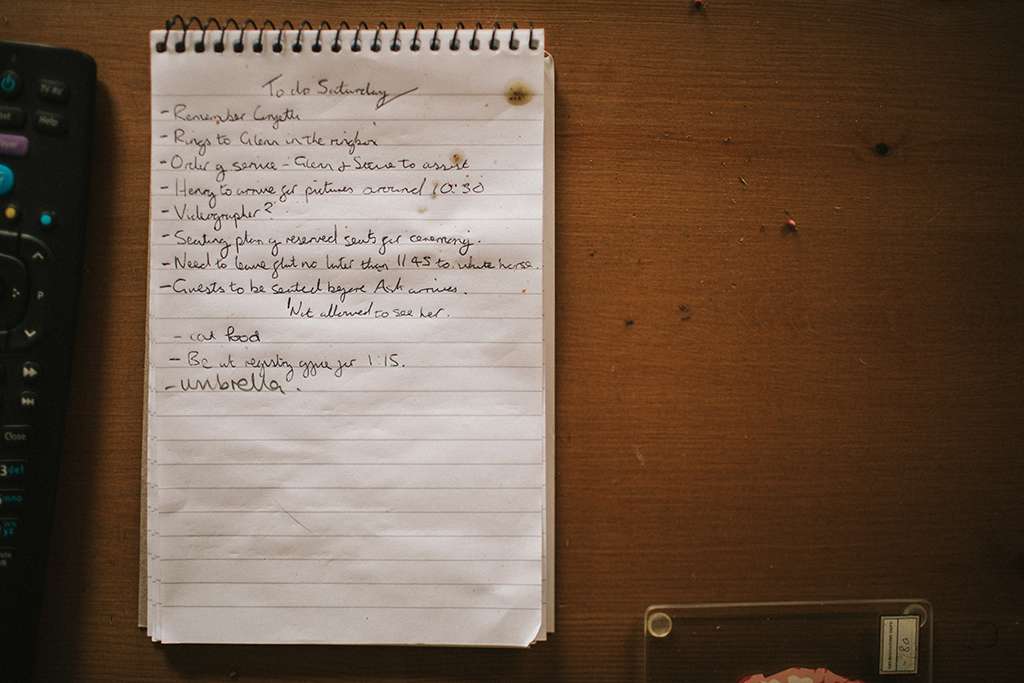 To do Saturday
- Remember Confetti
- Rings to Glenn in the ringbox
- Order of service - Glenn & Steve to assist
- Henry to arrive for pictures around 10:30
- Videographer?
- Seating plan of reserved seats for ceremony.
- Need to leave flat no later than 1145 to white horse.
- Guests to be seated before Ash arrives.
Not allowed to see her.
- cat food
- Be at registry office for 1:15.
- umbrella.
TV AV
Help
P
Close
3 def